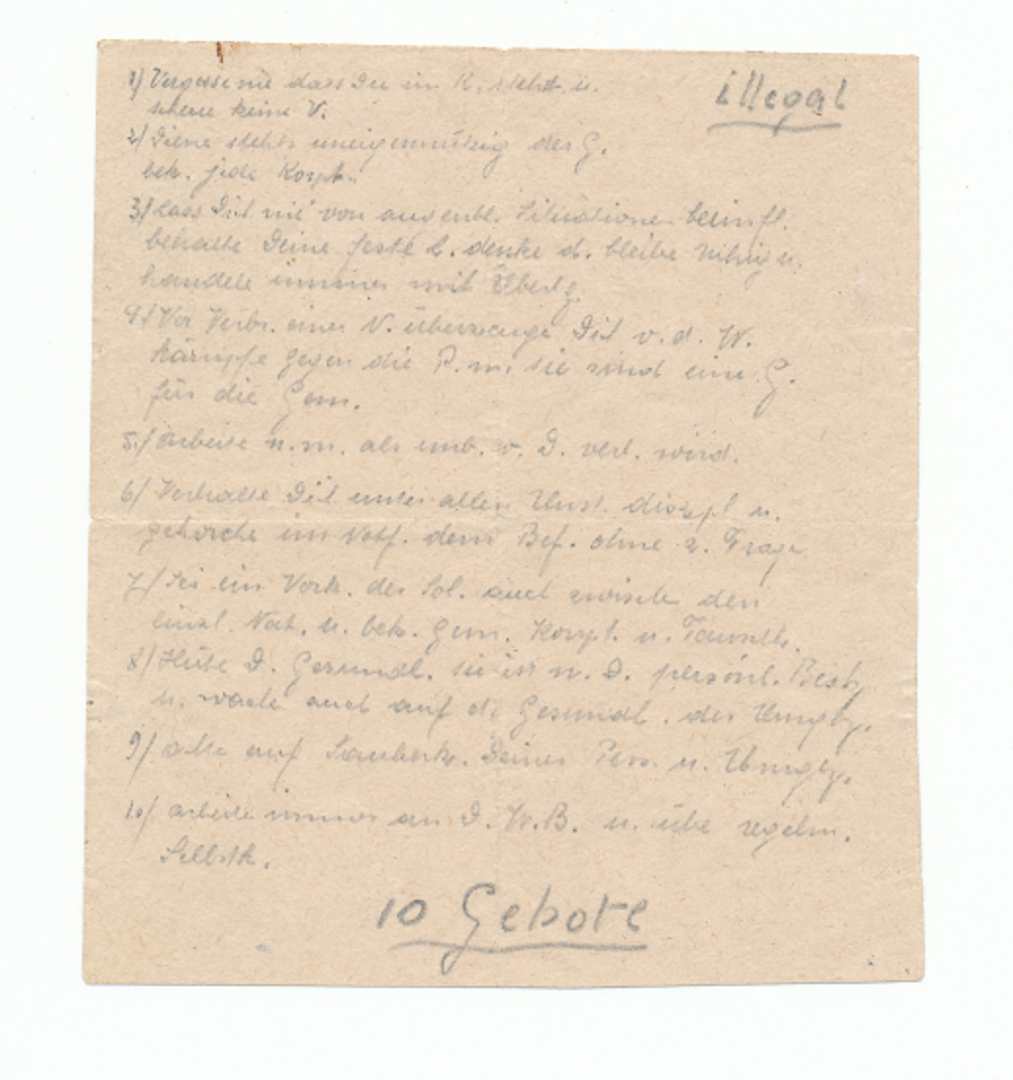 illegal
1) Vergesse nie dass Du im K. stehst u.
scheue keine V.
2) Diene stehts uneigennützig der G.
bek. jede Korpt.
3) Lass Dich nie von augenbl. Situationen beinfl.
behalte Deine feste L. denke d. bleibe ruhig u.
handele immer mit Überlg.
4) Vor Verbr. einer N. überzeuge Dich v. d. W.
kämpfe gegen die P. m. sie sind eine G.
für die Gem.
5.) arbeite n. m. als unb. v. D. verl. wird.
6) Verhalte Dich unter allen Umst. diszpl u.
gehorche im Notf. dem Bef. ohne z. Fragen
7) Sei ein Vork. der Sol. auch zwischen den
einzl. Nat. u. bek. gem. Korpt. u. Tauschh.
8) Hüte D. Gesundh. sie ist n. D. persönl. Besitz
u. wache auch auf d. Gesundh. der Umgbg.
9) achte auf Sauberk. Deiner Pers. u. Umgbg.
10) arbeite immer an D. W.B. u. übe regelm.
Selbstk.
10 Gebote